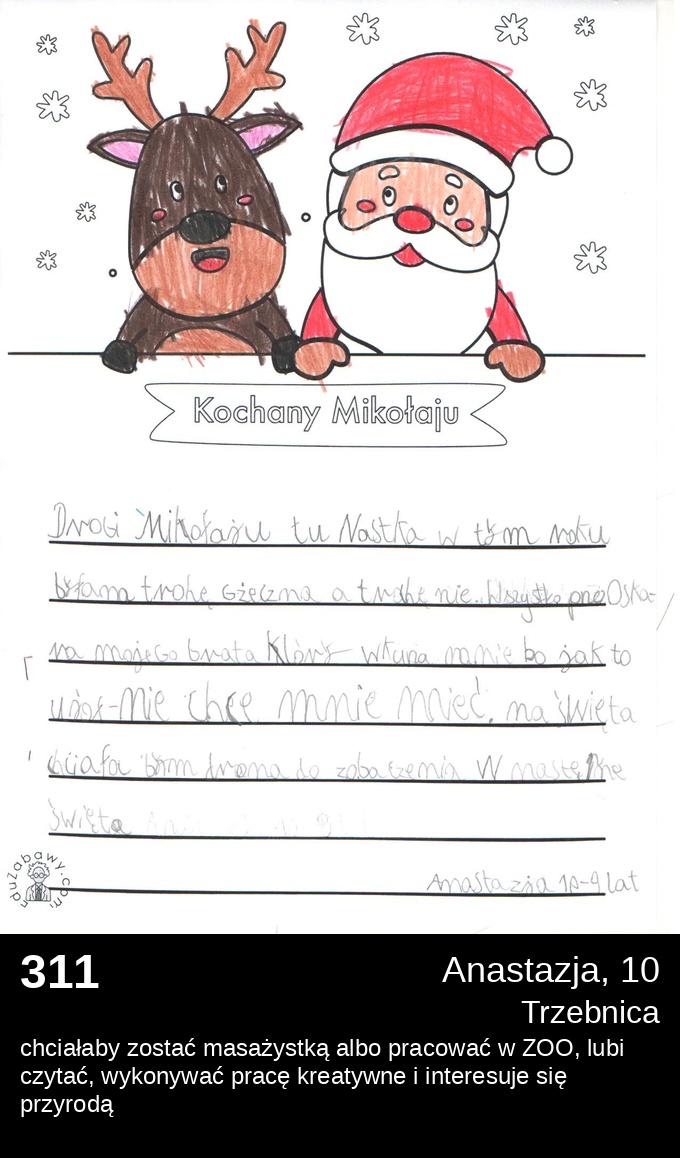 Kochany Mikołaju
Drogi Mikołaju tu Nastka w tym roku
byłam trohę gżeczna a trohę nie. Wszystko pszez Oska-
ra mojego brata który wkuża mnie bo jak to
-nie chce mnie mieć. na święta
chciała bym drona do zobaczenia W następne
święta
Anastazja 10-9 lat
eduzabawy.com
311
Anastazja, 10
Trzebnica
chciałaby zostać masażystką albo pracować w ZOO, lubi
czytać, wykonywać pracę kreatywne i interesuje się
przyrodą